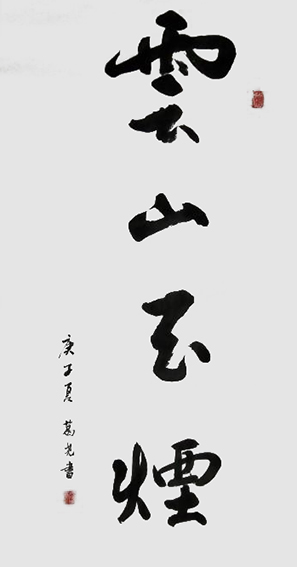 雲山石煙
庚子夏 葛 書